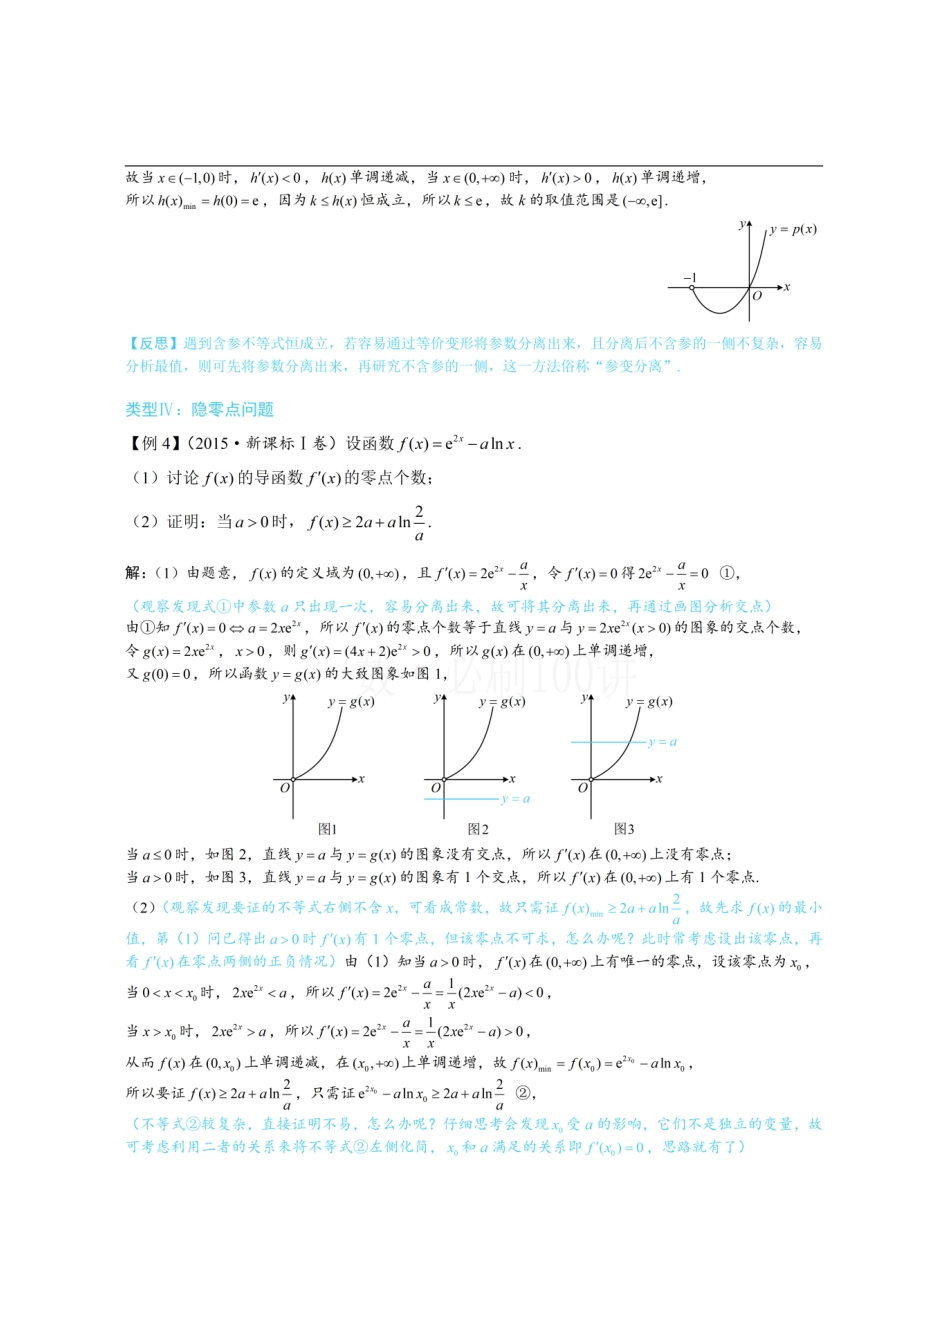 故当 x∈(−1,0) 时，h′(x)<0，h(x) 单调递减，当 x∈(0,+∞) 时，h′(x)>0，h(x) 单调递增，
所以 h(x)min = h(0) = e，因为 k ≤ h(x) 恒成立，所以 k ≤ e，故 k 的取值范围是 (−∞,e].
y
y = p(x)
−1
O
x
【反思】遇到含参不等式恒成立，若容易通过等价变形将参数分离出来，且分离后不含参的一侧不复杂，容易
分析最值，则可先将参数分离出来，再研究不含参的一侧，这一方法俗称“参变分离”.
类型Ⅳ：隐零点问题
【例 4】（2015·新课标Ⅰ卷）设函数 f(x) = e^{2x} − a ln x.
（1）讨论 f(x) 的导函数 f′(x) 的零点个数；
（2）证明：当 a > 0 时，f(x) ≥ 2a + a ln 2/a.
解：（1）由题意，f(x) 的定义域为 (0,+∞)，且 f′(x) = 2e^{2x} − a/x，令 f′(x) = 0 得 2e^{2x} − a/x = 0 ①，
（观察发现式①中参数 a 只出现一次，容易分离出来，故可将其分离出来，再通过画图分析交点）
由①知 f′(x) = 0 ⇔ a = 2xe^{2x}，所以 f′(x) 的零点个数等于直线 y = a 与 y = 2xe^{2x}(x > 0) 的图象的交点个数，
令 g(x) = 2xe^{2x}，x > 0，则 g′(x) = (4x + 2)e^{2x} > 0，所以 g(x) 在 (0,+∞) 上单调递增，
又 g(0) = 0，所以函数 y = g(x) 的大致图象如图 1，
数 必刷100讲
y y = g(x) y y = g(x) y y = g(x)
y = a
x x x
O O O
y = a
图1 图2 图3
当 a ≤ 0 时，如图 2，直线 y = a 与 y = g(x) 的图象没有交点，所以 f′(x) 在 (0,+∞) 上没有零点；
当 a > 0 时，如图 3，直线 y = a 与 y = g(x) 的图象有 1 个交点，所以 f′(x) 在 (0,+∞) 上有 1 个零点.
（2）（观察发现要证的不等式右侧不含 x，可看成常数，故只需证 f(x)min ≥ 2a + a ln 2/a，故先求 f(x) 的最小
值，第（1）问已得出 a > 0 时 f′(x) 有 1 个零点，但该零点不可求，怎么办呢？此时常考虑设出该零点，再
看 f′(x) 在零点两侧的正负情况）由（1）知当 a > 0 时，f′(x) 在 (0,+∞) 上有唯一的零点，设该零点为 x₀，
当 0 < x < x₀ 时，2xe^{2x} < a，所以 f′(x) = 2e^{2x} − a/x = 1/x(2xe^{2x} − a) < 0，
当 x > x₀ 时，2xe^{2x} > a，所以 f′(x) = 2e^{2x} − a/x = 1/x(2xe^{2x} − a) > 0，
从而 f(x) 在 (0,x₀) 上单调递减，在 (x₀,+∞) 上单调递增，故 f(x)min = f(x₀) = e^{2x₀} − a ln x₀，
所以要证 f(x) ≥ 2a + a ln 2/a，只需证 e^{2x₀} − a ln x₀ ≥ 2a + a ln 2/a ②，
（不等式②较复杂，直接证明不易，怎么办呢？仔细思考会发现 x₀ 受 a 的影响，它们不是独立的变量，故
可考虑利用二者的关系来将不等式②左侧化简，x₀ 和 a 满足的关系即 f′(x₀) = 0，思路就有了）